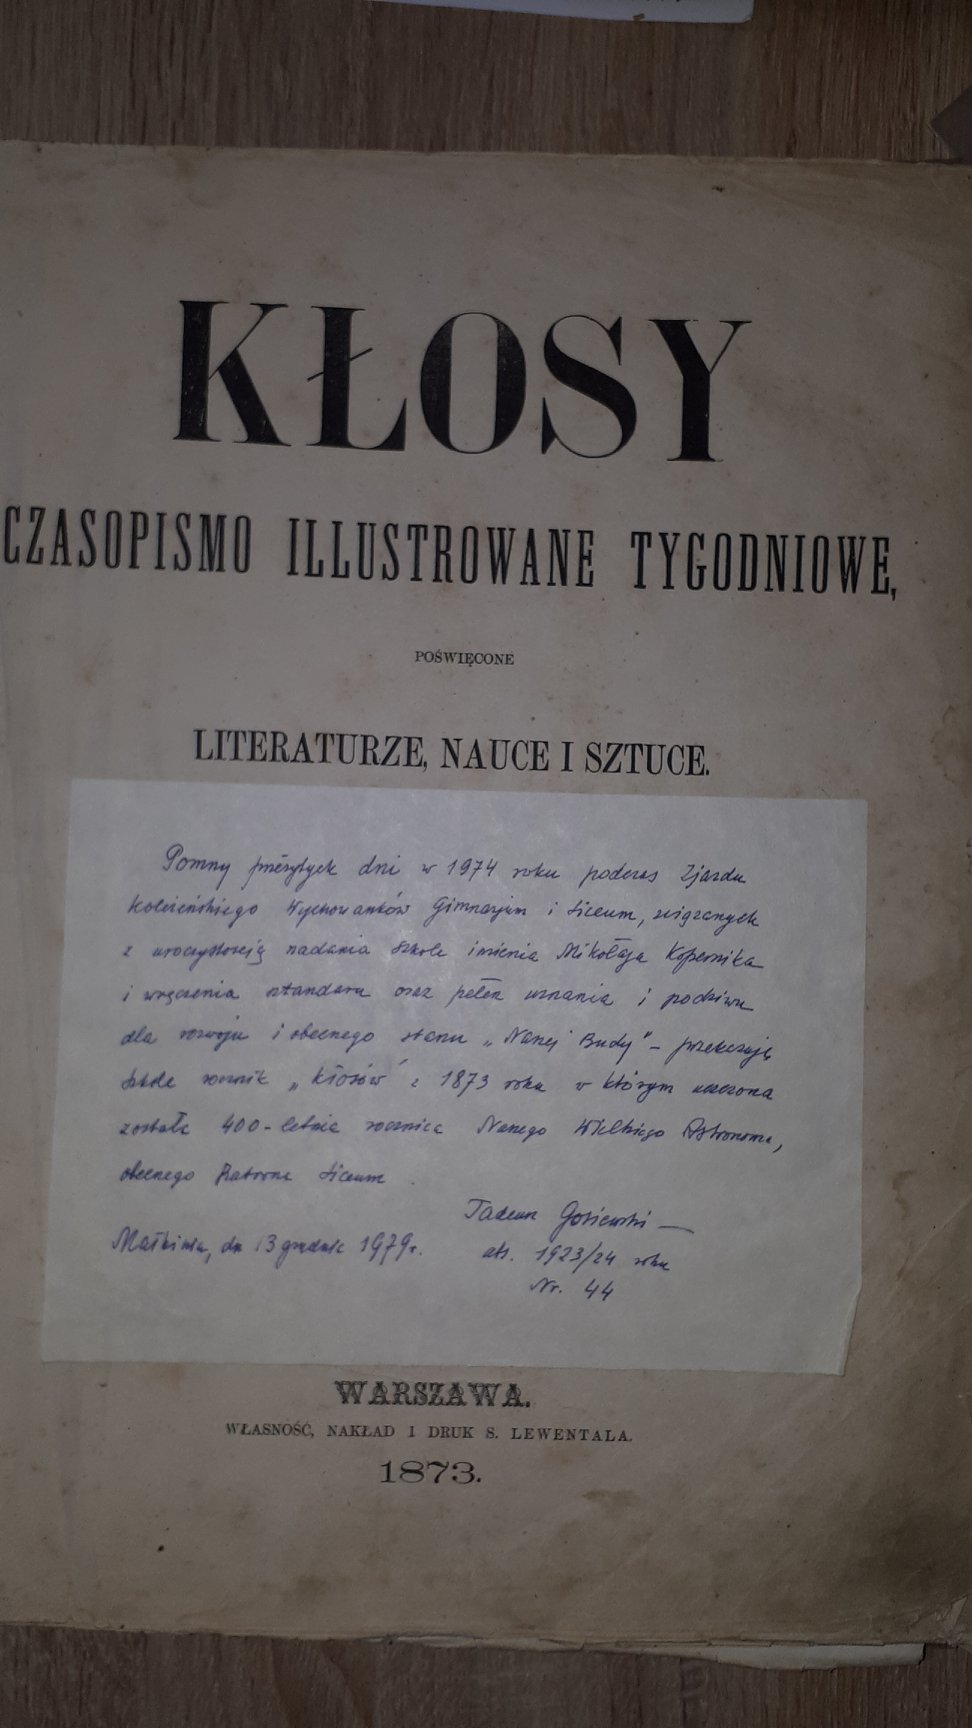 KŁOSY
CZASOPISMO ILLUSTROWANE TYGODNIOWE,
POŚWIĘCONE
LITERATURZE, NAUCE I SZTUCE.
Pomny przeżytych dni w 1974 roku podczas Zjazdu
Koleżeńskiego Wychowanków Gimnazjum i Liceum, związanych
z uroczystością nadania Szkole imienia Mikołaja Kopernika
i wręczenia sztandaru oraz pełen uznania i podziwu
dla rozwoju i obecnego stanu „Naszej Budy" – przekazuję
Szkole rocznik „Kłosów" z 1873 roku w którym uczczona
została 400-letnia rocznica Naszego Wielkiego Astronoma,
obecnego Patrona Liceum.
Tadeusz Gosiewski
Małkinia, dn 13 grudnia 1979r.
abs. 1923/24 roku
Nr. 44
WARSZAWA.
WŁASNOŚĆ, NAKŁAD I DRUK S. LEWENTALA.
1873.